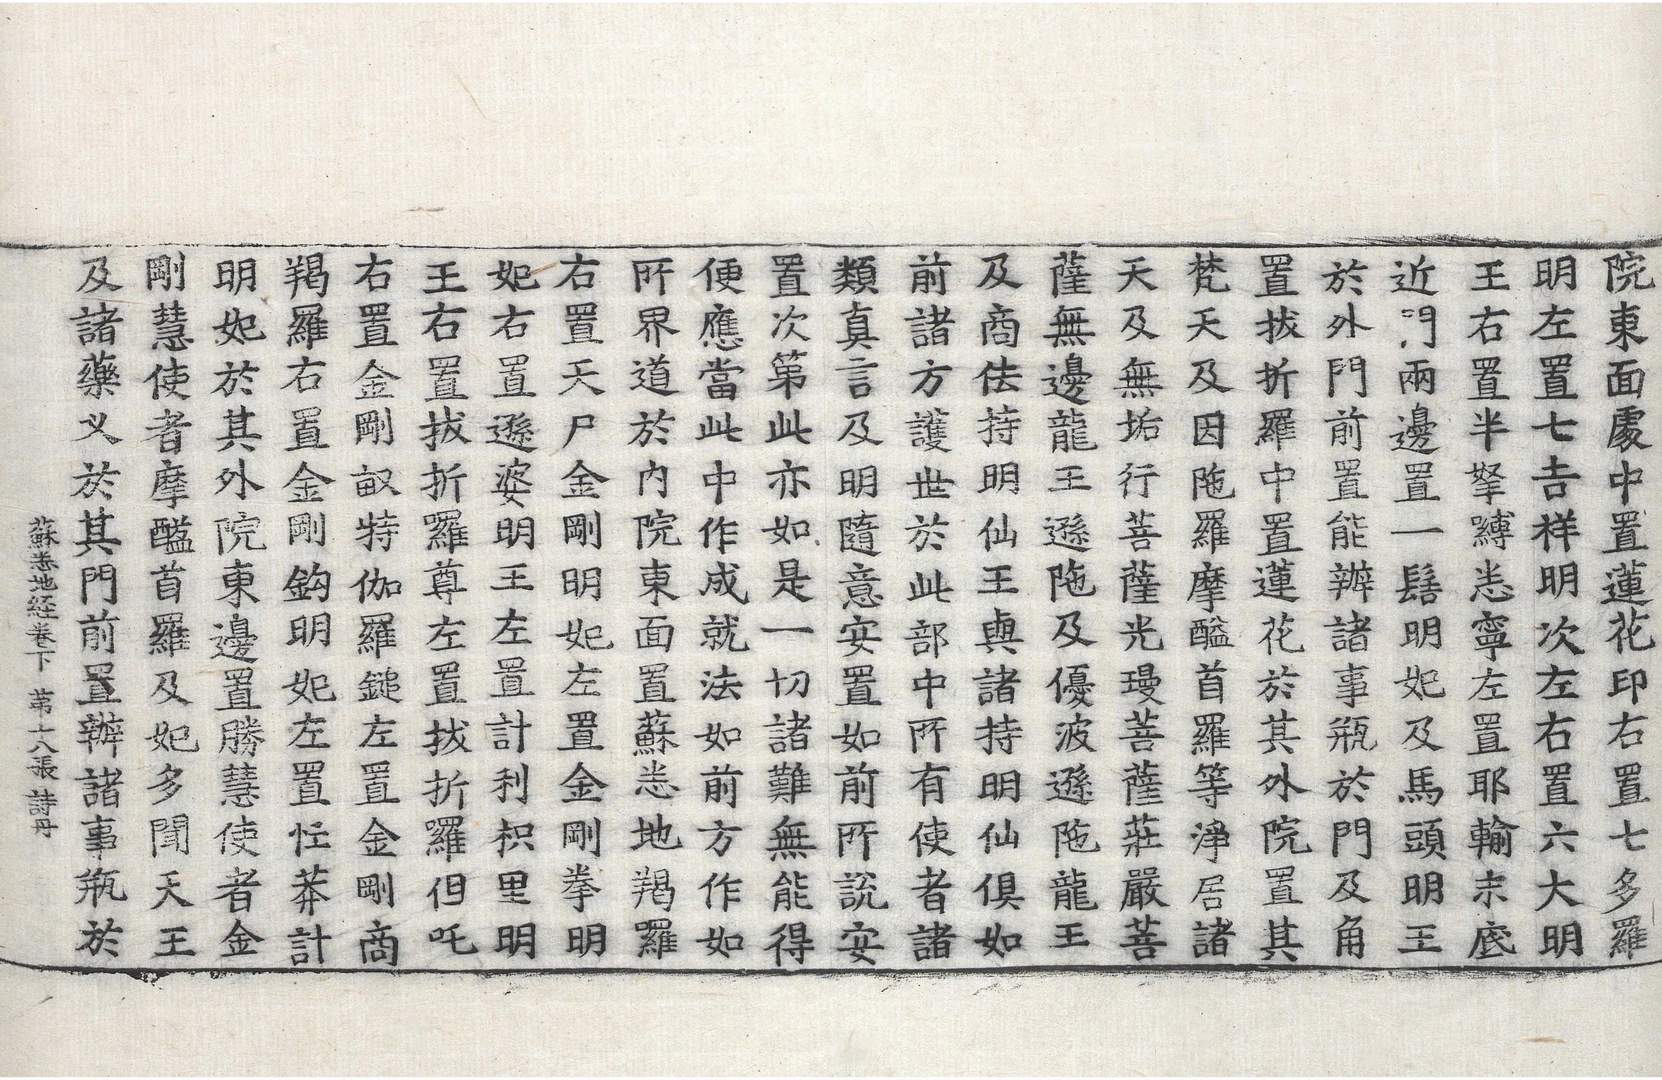 院東面處中置蓮花印右置七多羅
明左置七吉祥明次左右置六大明
王右置半拏嚩恙寧左置耶輸末底
近門兩邊置一髻明妃及馬頭明王
於外門前置能辦諸事瓶於門及角
置拔折羅中置蓮花於其外院置其
梵天及因陁羅摩醯首羅等淨居諸
天及無垢行菩薩光瑖菩薩莊嚴菩
薩無邊龍王遜陁及優波遜陁龍王
及商佉持明仙王與諸持明仙俱如
前諸方護世於此部中所有使者諸
類真言及明隨意安置如前所說安
置次第此亦如是一切諸難無能得
便應當此中作成就法如前方作如
所界道於內院東面置蘇悉地羯羅
右置天尸金剛明妃左置金剛拳明
妃右置遜婆明王左置計利枳里明
王右置拔折羅尊左置拔折羅但吒
右置金剛䭾特伽羅鎚左置金剛商
羯羅右置金剛鈎明妃左置忙莽計
明妃於其外院東邊置勝慧使者金
剛慧使者摩醯首羅及妃多聞天王
及諸藥叉於其門前置辦諸事瓶於
蘇悉地經卷下 第十八張 詩丹